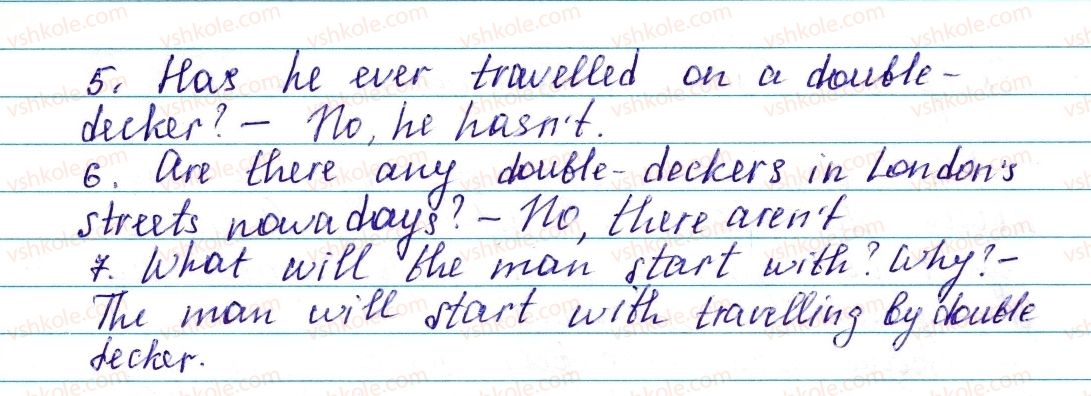 5. Has he ever travelled on a double-
decker? – No, he hasn't.
6. Are there any double-deckers in London's
streets nowadays? – No, there aren't
7. What will the man start with? Why? –
The man will start with travelling by double
decker.